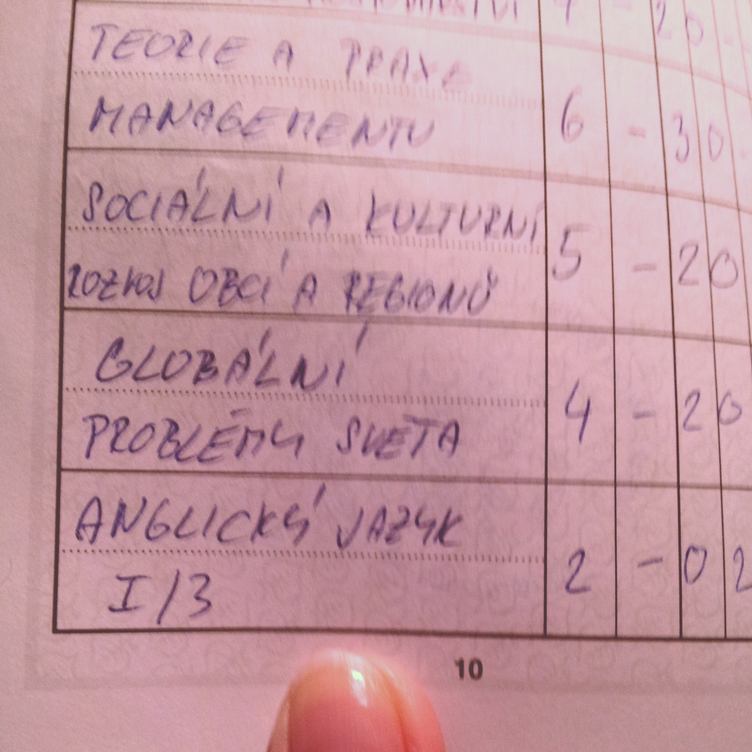 7 - 20 -
TEORIE A PRAXE
MANAGEMENTU 6 - 30 -
SOCIÁLNÍ A KULTURNÍ
ROZVOJ OBCÍ A REGIONŮ 5 - 20
GLOBÁLNÍ
PROBLÉMY SVĚTA 4 - 20
ANGLICKÝ JAZYK
I/3 2 - 02
10